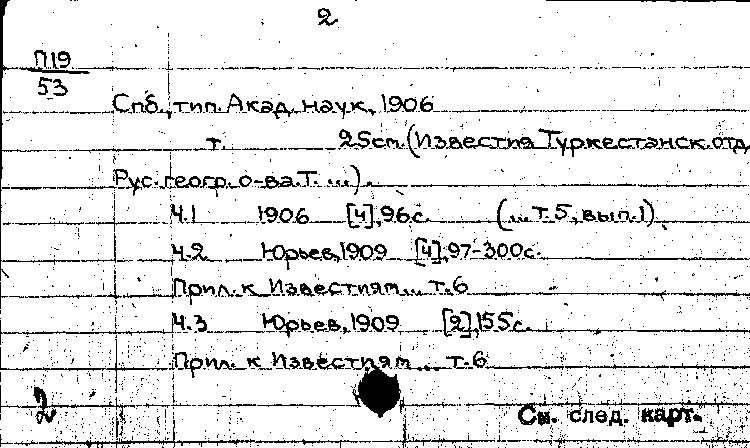 2
П19
53
Спб., тип. Акад. наук, 1906
т. 25см. (Известия Туркестанск. отд.
Рус. геогр. о-ва. Т. ...).
Ч.1 1906 [4], 96с. (... т.5, вып.1).
Ч.2 Юрьев, 1909 [4], 97-300с.
Прил. к Известиям... т.6
Ч.3 Юрьев, 1909 [2], 155с.
Прил. к Известиям ... т.6
2 См. след. карт.